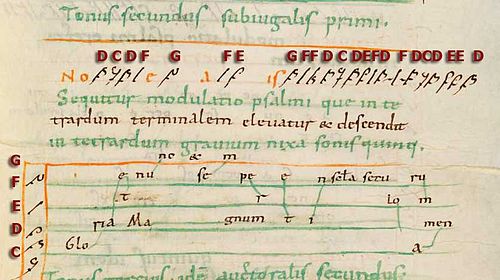 Tonus secundus subiugalis primi.
D C D F G F E G F F D C D E F D F D C D E E D
No e a is
Sequitur modulatio psalmi que in te
trardum terminalem elevatur & descendit
in tetrardum gravium nixa sonis quinq.
G no & m
F e nu se pe e n sela secu ru
E t r lo m
D ria Ma gnum t i men
C Glo a
Tonus tercius id